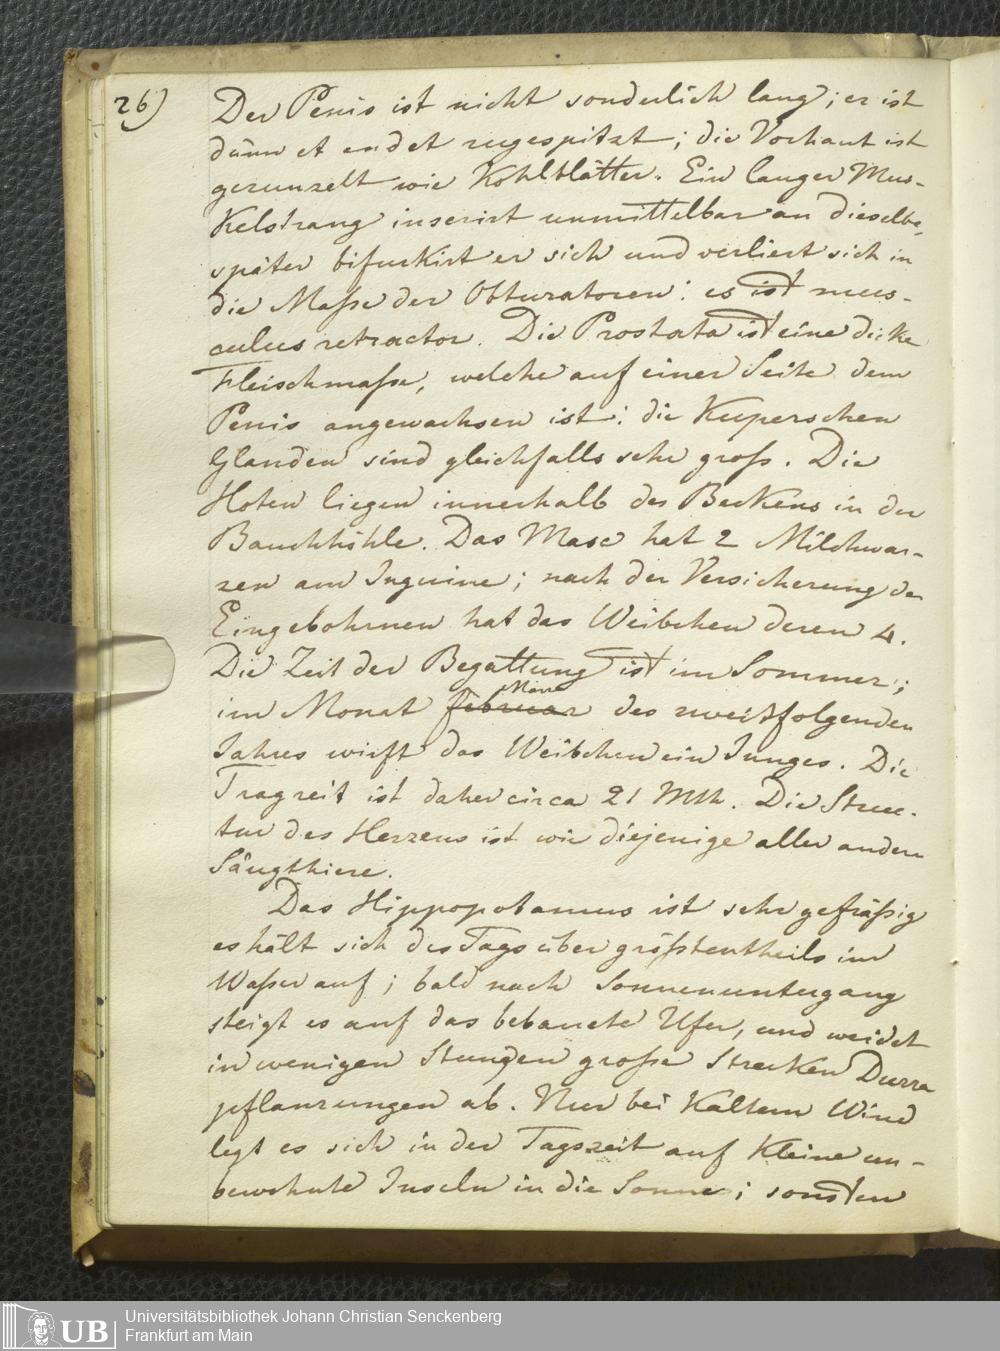 26)
Der Penis ist nicht sonderlich lang; er ist
dünn et endet zugespitzt; die Vorhaut ist
gerunzelt wie Kohlblätter. Ein langer Mus-
kelstrang inserirt unmittelbar an dieselbe,
später bifurkirt er sich und verliert sich in
die Maße der Obturatoren: es ist mus-
culus retractor. Die Prostata ist eine dicke
Fleischmaße, welche auf einer Seite dem
Penis angewachsen ist: die Kuperschen
Glanden sind gleichfalls sehr groß. Die
Hoten liegen innerhalb des Beckens in der
Bauchhöhle. Das Masc hat 2 Milchwar-
zen am Inguine; nach der Versicherung der
Eingebohrnen hat das Weibchen deren 4.
Die Zeit der Begattung ist im Sommer;
im Monat februar März des zweitfolgenden
Jahres wirft das Weibchen ein Junges. Die
Tragzeit ist daher circa 21 Mth. Die Struc-
tur des Herzens ist wie diejenige aller andern
Säugthiere.
Das Hippopotamus ist sehr gefräßig
es hält sich des Tags über größtentheils im
Waßer auf; bald nach Sonnenuntergang
steigt es auf das bebaute Ufer, und weidet
in wenigen Stunden große Strecken Durra
pflanzungen ab. Nur bei kaltem Wind
legt es sich in der Tagszeit auf kleine un-
bewohnte Inseln in die Sonne; sonsten
UB
Universitätsbibliothek Johann Christian Senckenberg
Frankfurt am Main